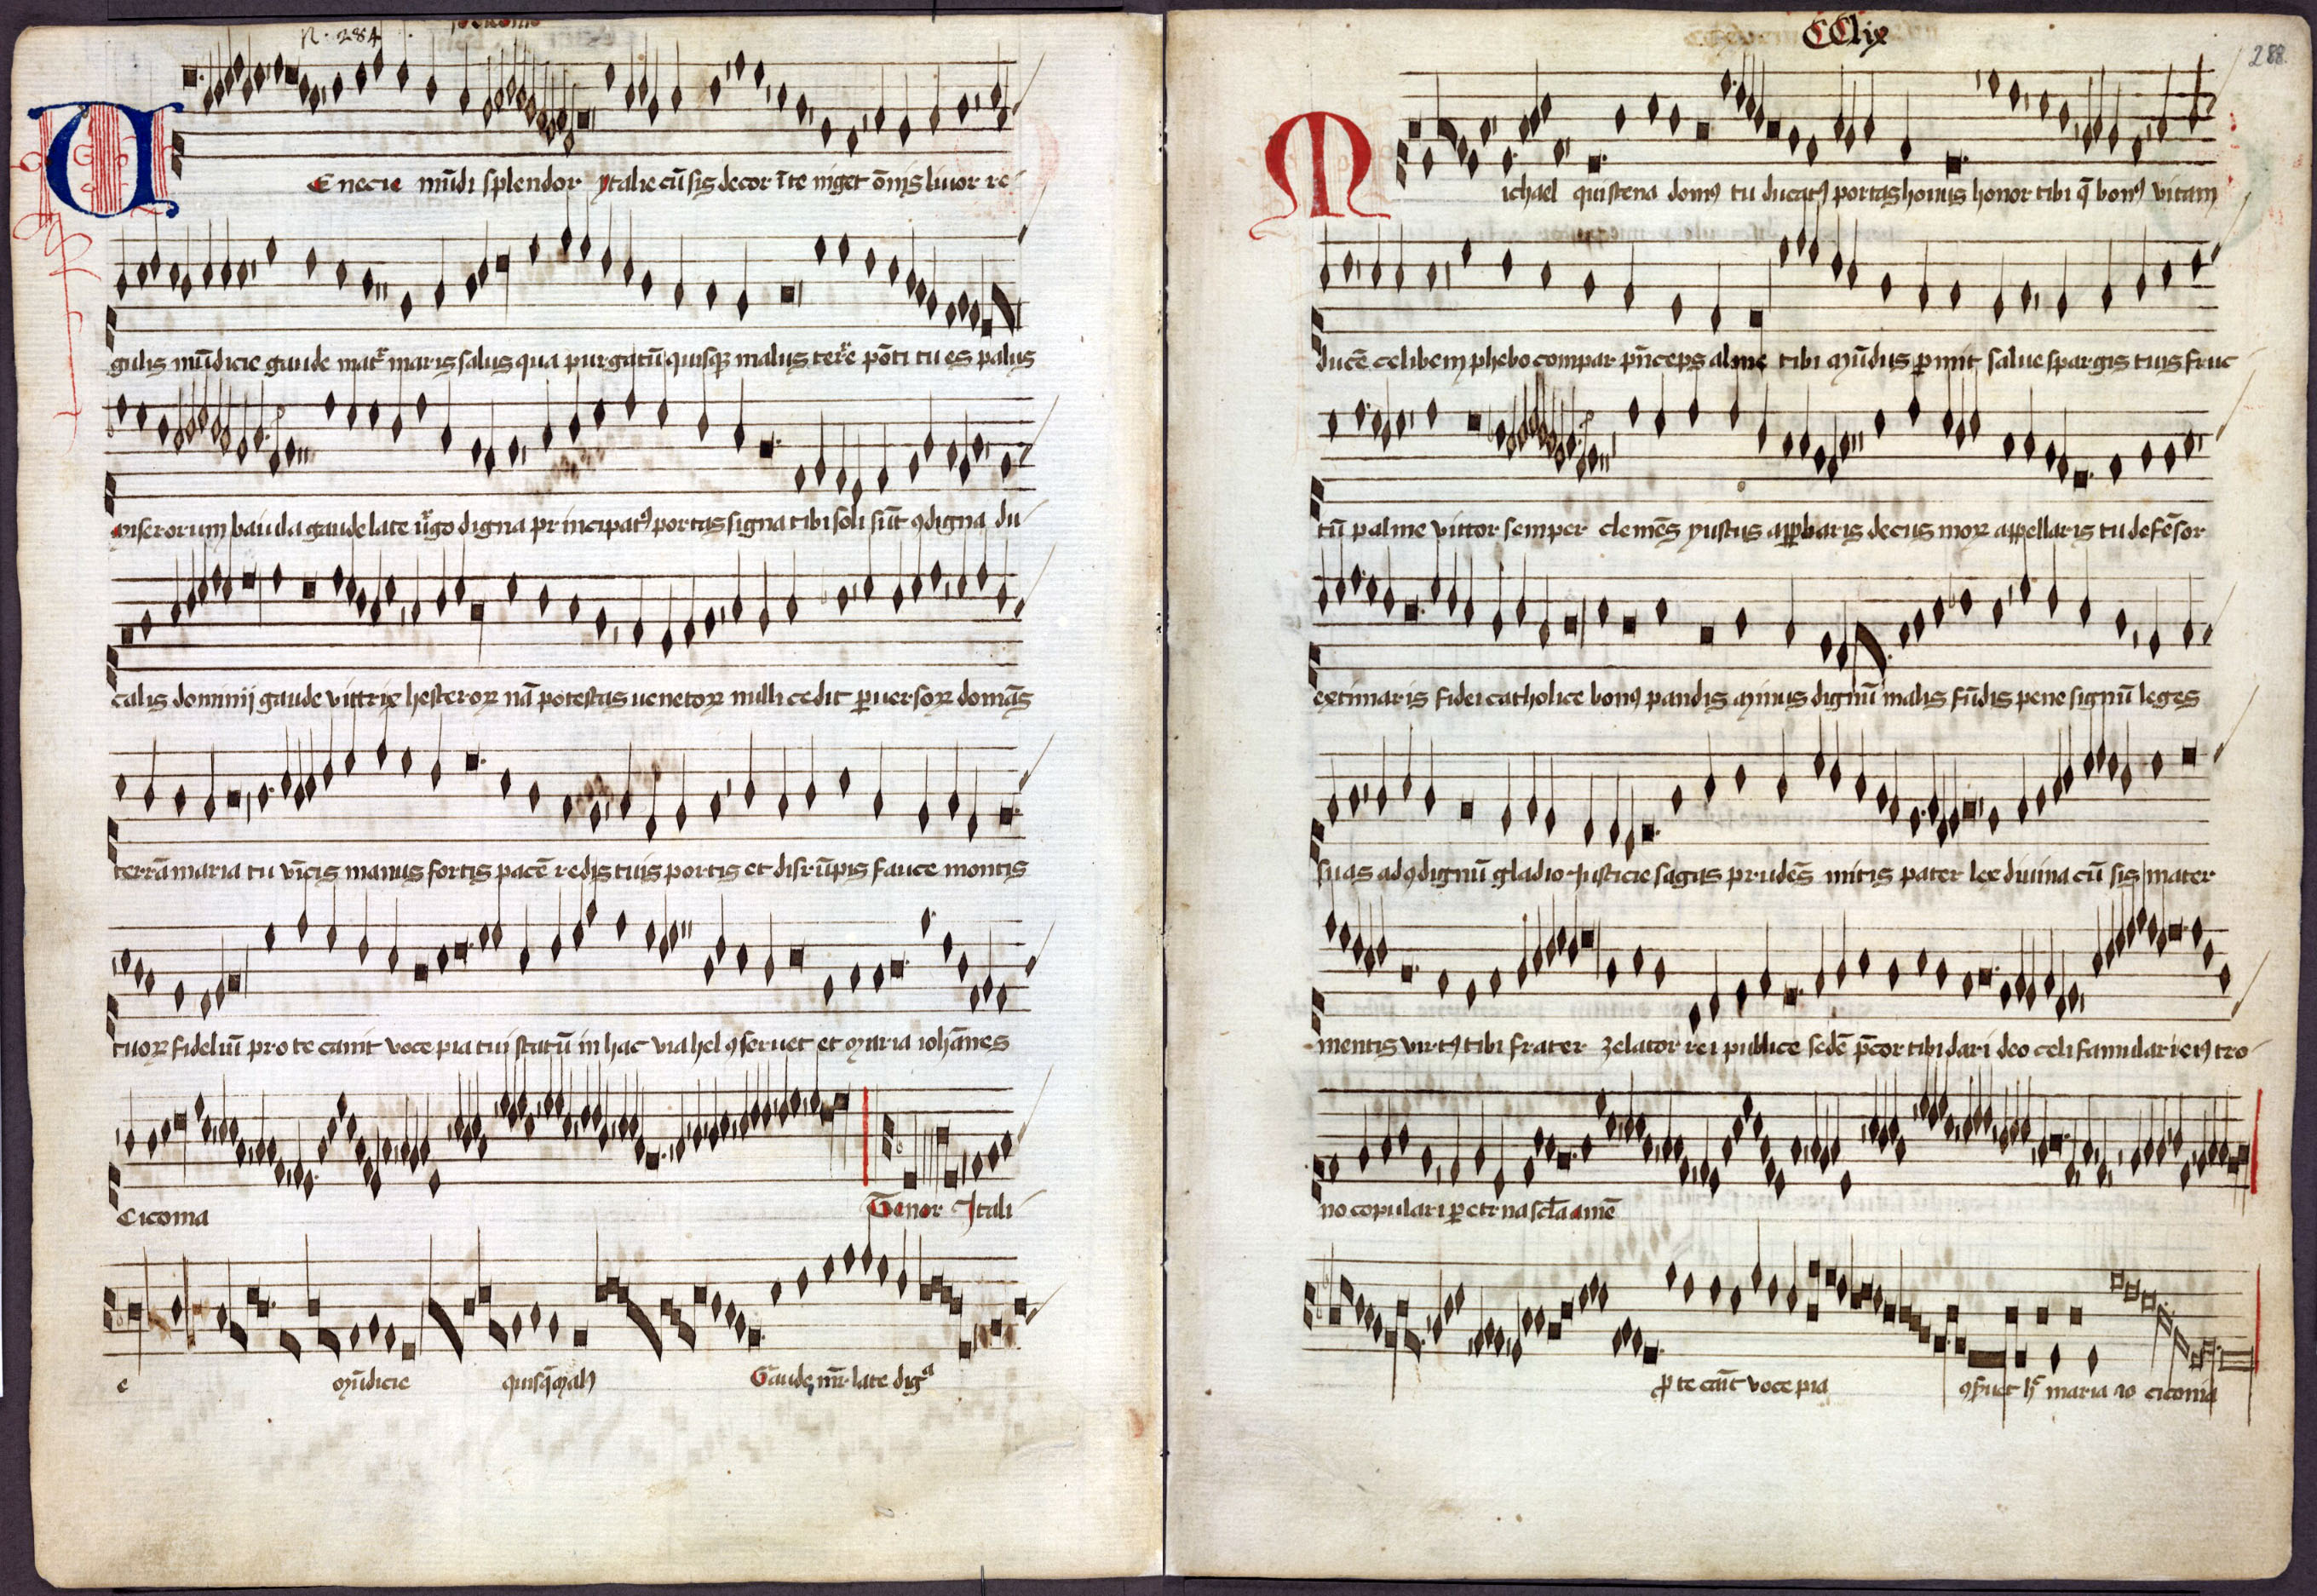 R. 284
Venecie mūdi splendor ytalie cū sis decor ī te viget ōnis livor re
gulis mūdicie gaude mat̄ maris salus qua purgatū quisqz malus terr̄e pōti tu es palus
miserorum baiula gaude late v̄go digna principatꝰ portas signa tibi soli sūt ꝯdigna du
calis dominij gaude vittrix hesteroꝝ nā potestas venetoꝝ nulli cedit ꝑversoꝝ domās
terrā maria tu vīcis manus fortis pacē redis tuis portis et disrūpis fauce montis
tuoꝝ fideliū pro te canit voce pia tui statū in hac via hel ꝯservet et maria iohānes
Ciconia
Tenor Itali
e mūdicie quisq̄ mal Gaude mr̄ late digᵃ
CClix
288
Michael qui stena domꝰ tu ducatꝰ portas honus honor tibi q̄ bonꝰ vitam
ducē celibem phebo compar p̄nceps alme tibi mūdus ꝑmit salve spargis tuis fruc
tū palme vittor semper clemēs yustus apꝓbaris decus moꝝ appellaris tu defēsor
extimaris fidei catholice bonꝰ pandis minus dignū malis fūdis pene signū leges
suas ad ꝯdignū gladio Justicie sagas prudēs mitis pater lex divina cū sis mater
mentis virtꝰ tibi frater zelator rei publice sedē p̄cor tibi dari deo celi famulari eiꝰ tro
no copulari ꝑ eterna scl̄a amē
ꝓ te cāit voce pia ꝯs̄vet h̄ maria io ciconia